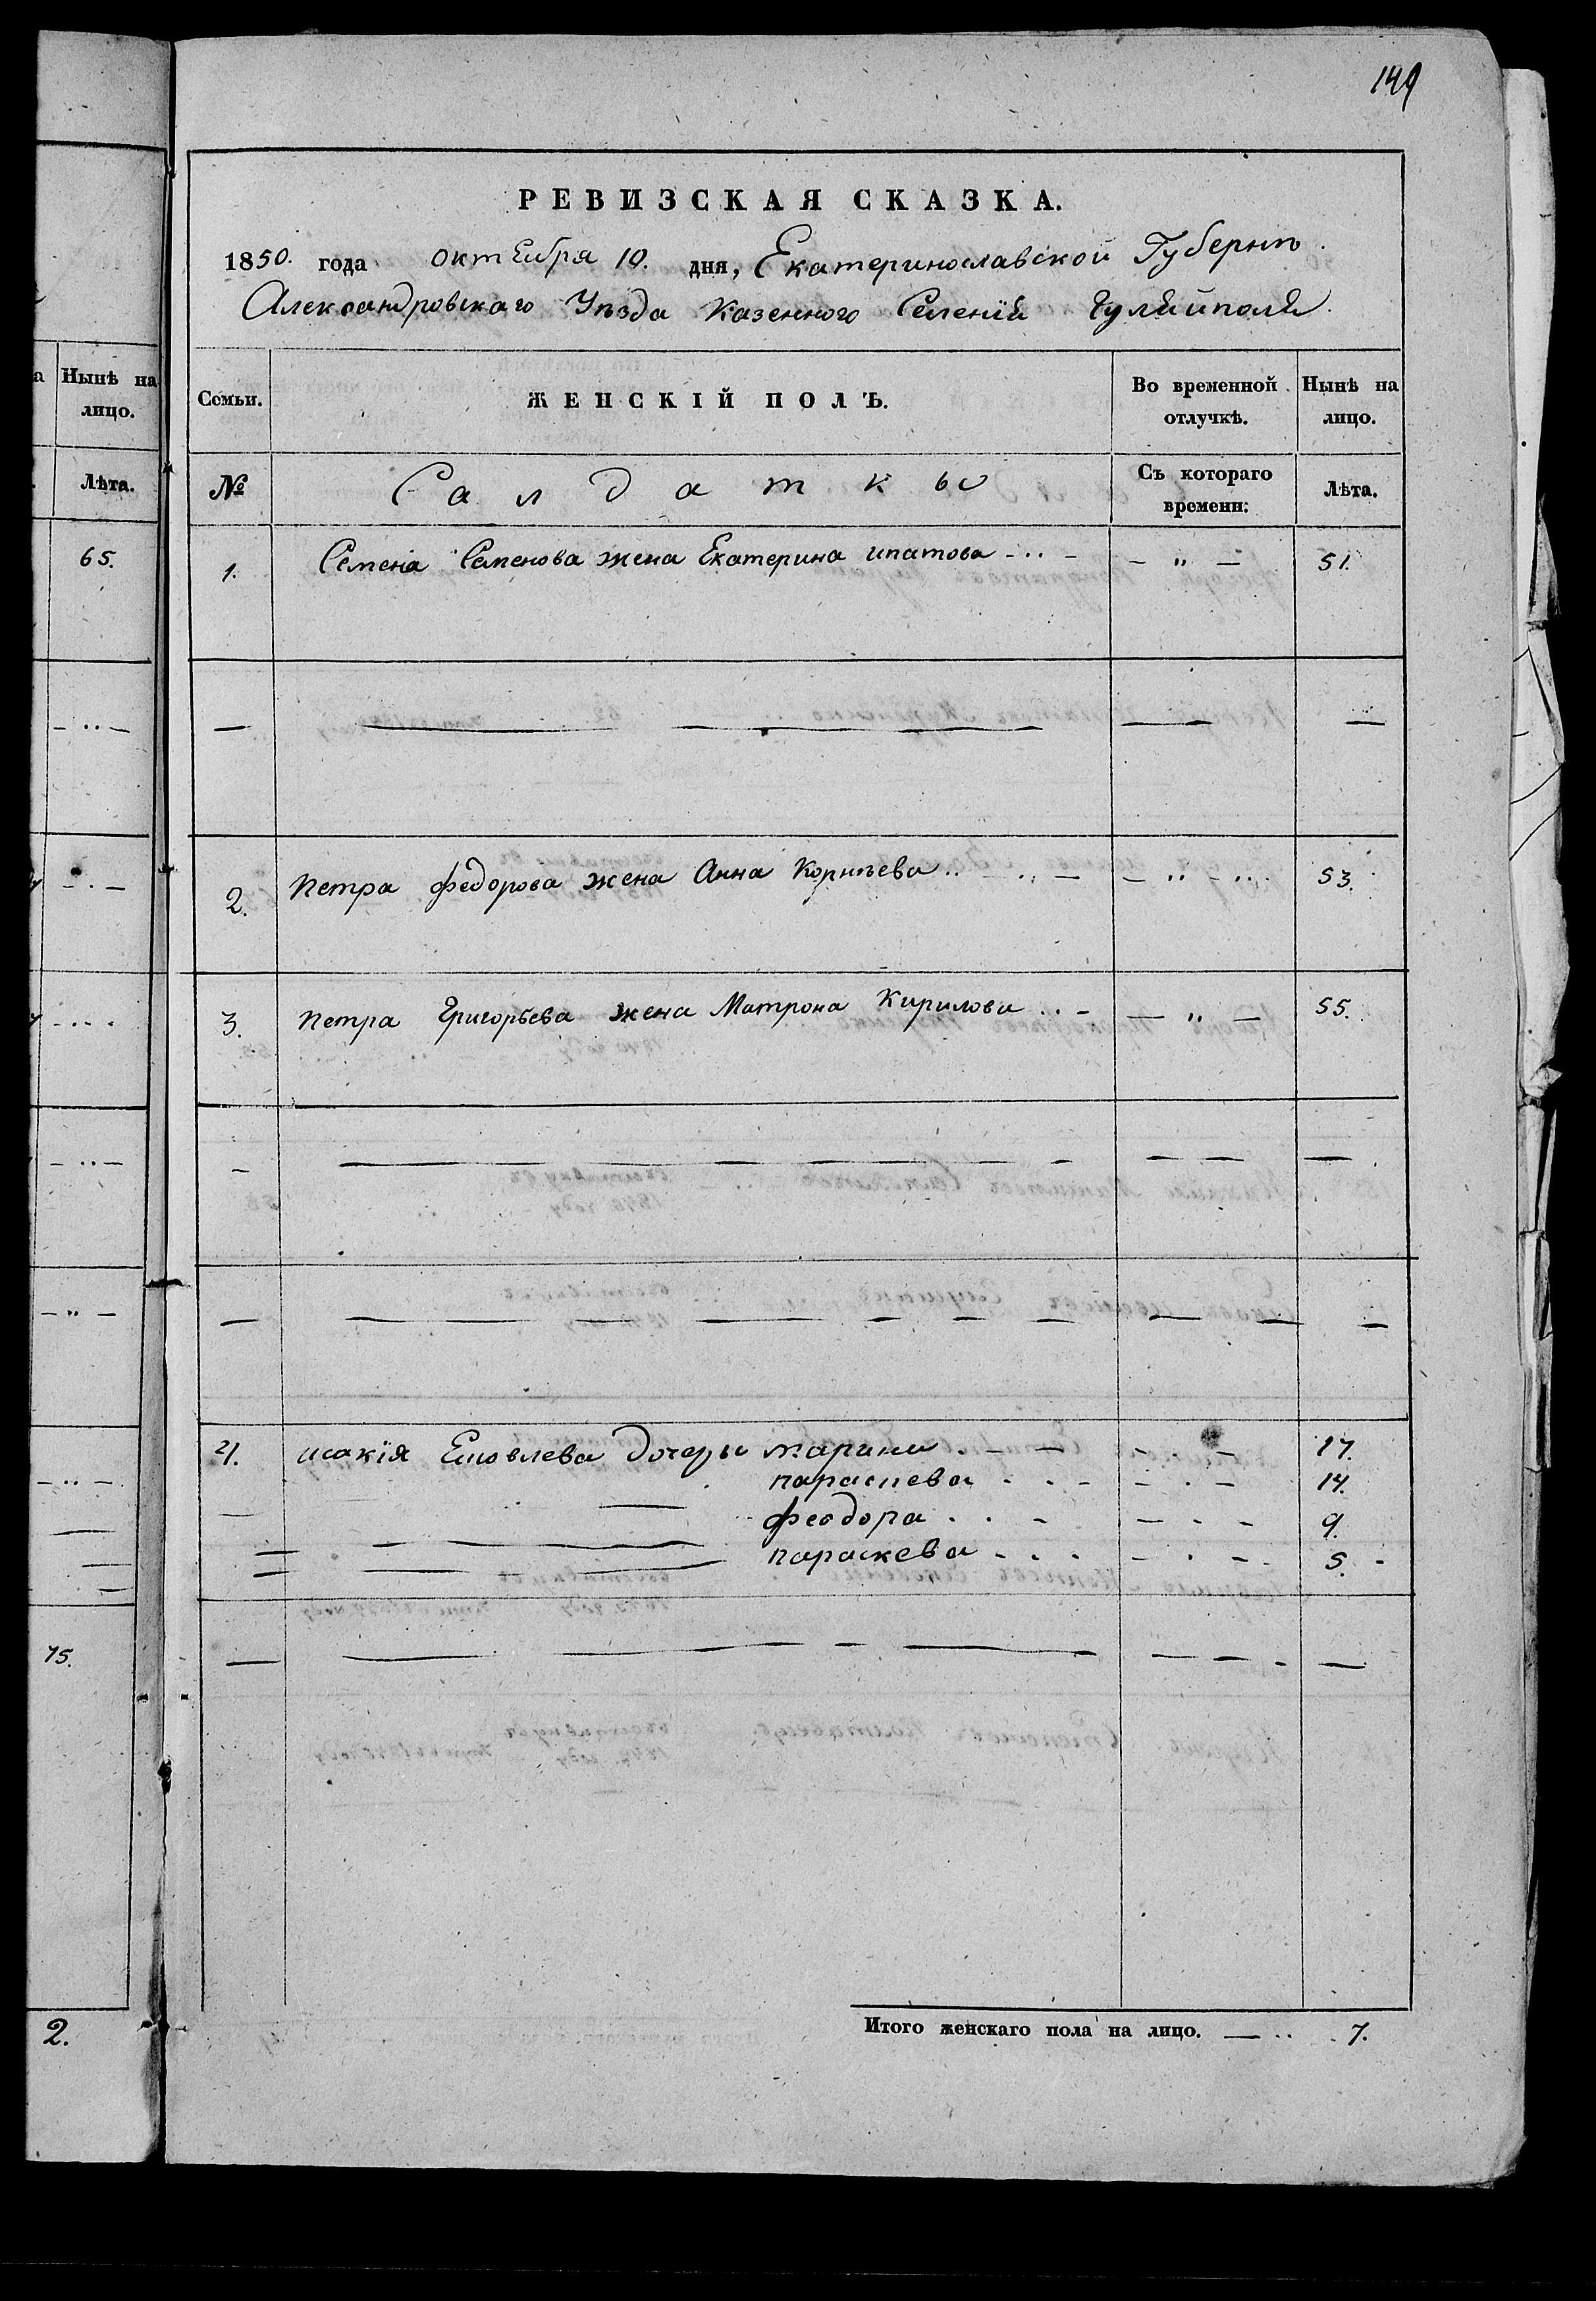 149
РЕВИЗСКАЯ СКАЗКА.
1850. года октября 10. дня, Екатеринославской Губерніи
Александровскаго Уѣзда Казенного Селенія Гуляйполя.
а Нынѣ на лицо.
Семьи. ЖЕНСКІЙ ПОЛЪ. Во временной отлучкѣ. Нынѣ на лицо.
Лѣта.
№ Салдатки Съ котораго времени: Лѣта.
65.
1. Семена Семенова жена Екатерина ипатова - „ - 51.
2. Петра федорова жена Анна Корнѣева - „ - 53.
3. Петра Григорьева жена Матрона Кирилова - „ - 55.
4. исакія дочеры марина 17.
параскева 14.
феодора 9.
параскева 5.
75.
2.
Итого женскаго пола на лицо. 7.